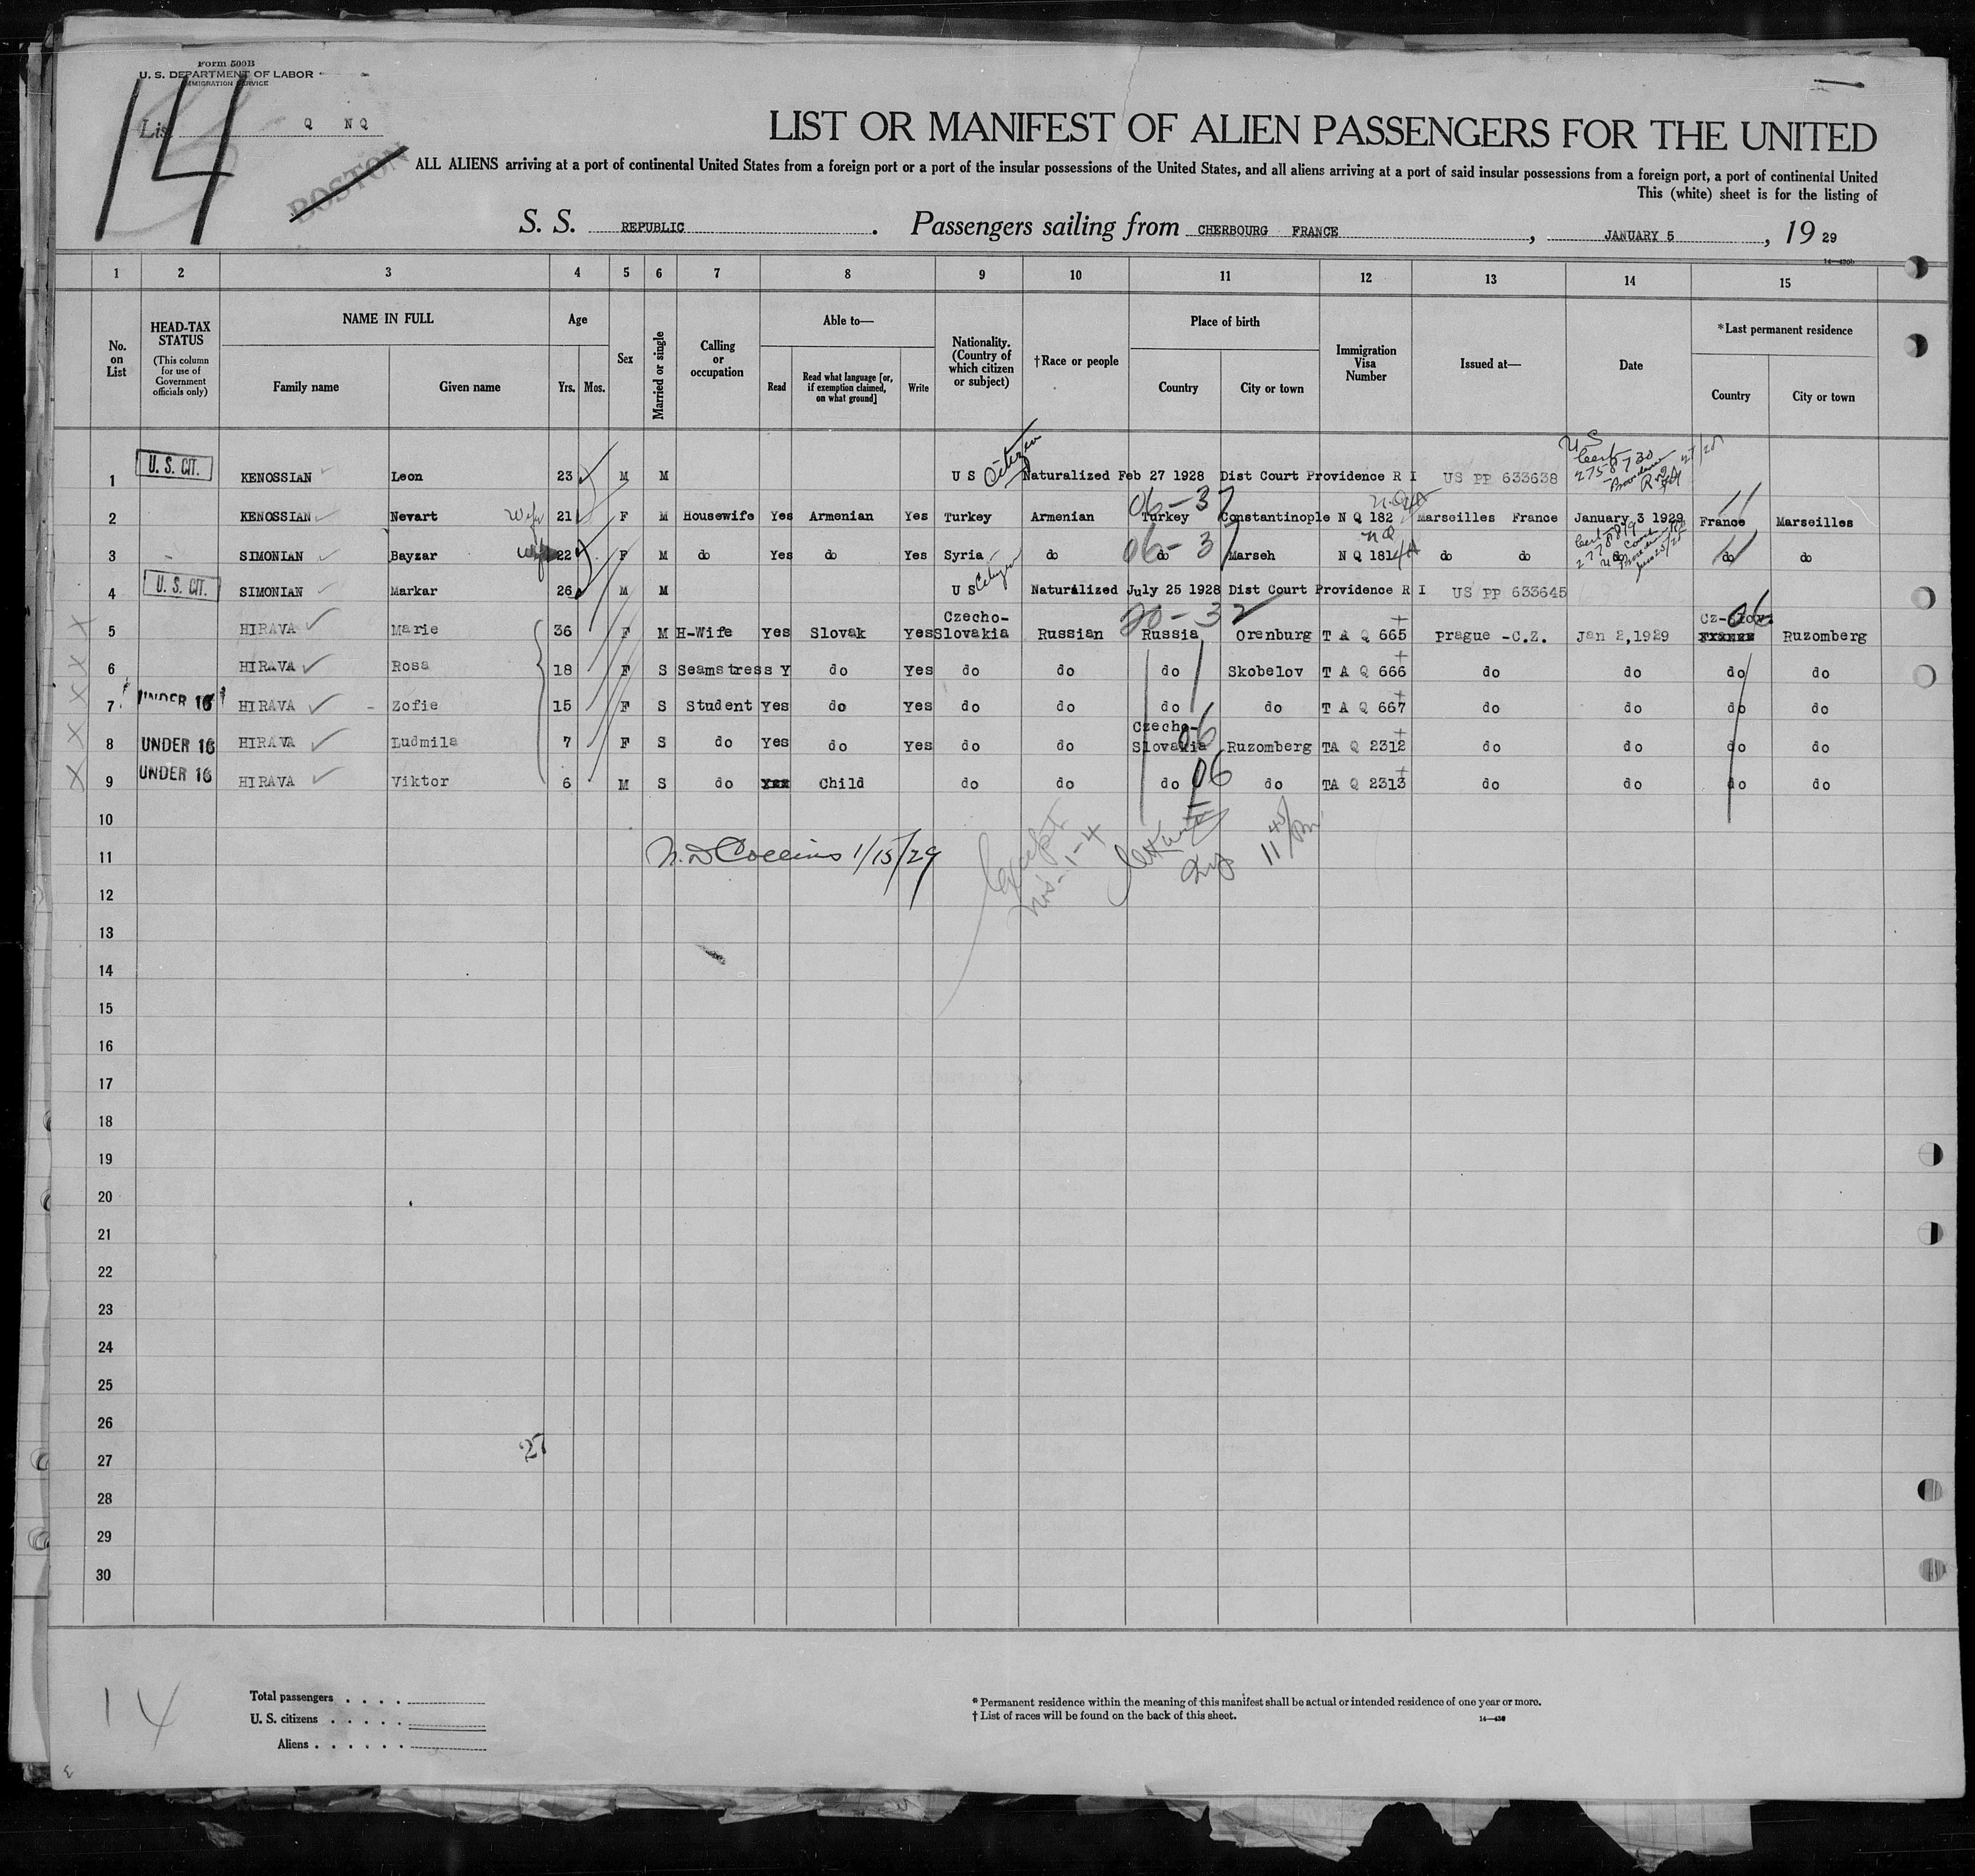 Form 500B
U. S. DEPARTMENT OF LABOR
IMMIGRATION SERVICE
14
List Q NQ
BOSTON
LIST OR MANIFEST OF ALIEN PASSENGERS FOR THE UNITED
ALL ALIENS arriving at a port of continental United States from a foreign port or a port of the insular possessions of the United States, and all aliens arriving at a port of said insular possessions from a foreign port, a port of continental United
This (white) sheet is for the listing of
S. S. REPUBLIC . Passengers sailing from CHERBOURG FRANCE , JANUARY 5 , 19 29
14—430b
1 2 3 4 5 6 7 8 9 10 11 12 13 14 15
No. on List
HEAD-TAX STATUS
(This column for use of Government officials only)
NAME IN FULL
Family name Given name
Age
Yrs. Mos.
Sex
Married or single
Calling or occupation
Able to—
Read Read what language [or, if exemption claimed, on what ground] Write
Nationality. (Country of which citizen or subject)
†Race or people
Place of birth
Country City or town
Immigration Visa Number
Issued at—
Date
*Last permanent residence
Country City or town
U S Cert 2758720
1 U. S. CIT. KENOSSIAN Leon 23 M M U S Citizen Naturalized Feb 27 1928 Dist Court Providence R I US PP 633638
06-37
2 KENOSSIAN Nevart Wife 21 F M Housewife Yes Armenian Yes Turkey Armenian Turkey Constantinople N Q 182 Marseilles France January 3 1929 France Marseilles
06-37
3 SIMONIAN Bayzar Wife 22 F M do Yes do Yes Syria do do Marseh N Q 181 do do do do do
4 U. S. CIT. SIMONIAN Markar 26 M M U S Citizen Naturalized July 25 1928 Dist Court Providence R I US PP 633645
20-32
5 HIRAVA Marie 36 F M H-Wife Yes Slovak Yes Czecho-Slovakia Russian Russia Orenburg T A Q 665 Prague -C.Z. Jan 2,1929 Cz-Slov. Ruzomberg
6 HIRAVA Rosa 18 F S Seamstress Y do Yes do do do Skobelov T A Q 666 do do do do
7 UNDER 16 HIRAVA Zofie 15 F S Student Yes do Yes do do do do T A Q 667 do do do do
8 UNDER 16 HIRAVA Ludmila 7 F S do Yes do Yes do do Czecho-Slovakia 06 Ruzomberg TA Q 2312 do do do do
9 UNDER 16 HIRAVA Viktor 6 M S do Child do do do 06 do TA Q 2313 do do do do
10
11 N. D Collins 1/15/29 Except nos-1-4
12
13
14
15
16
17
18
19
20
21
22
23
24
25
26
27
27
28
29
30
14
Total passengers . . . .
U. S. citizens . . . . .
Aliens . . . . . .
* Permanent residence within the meaning of this manifest shall be actual or intended residence of one year or more.
† List of races will be found on the back of this sheet.
14—430